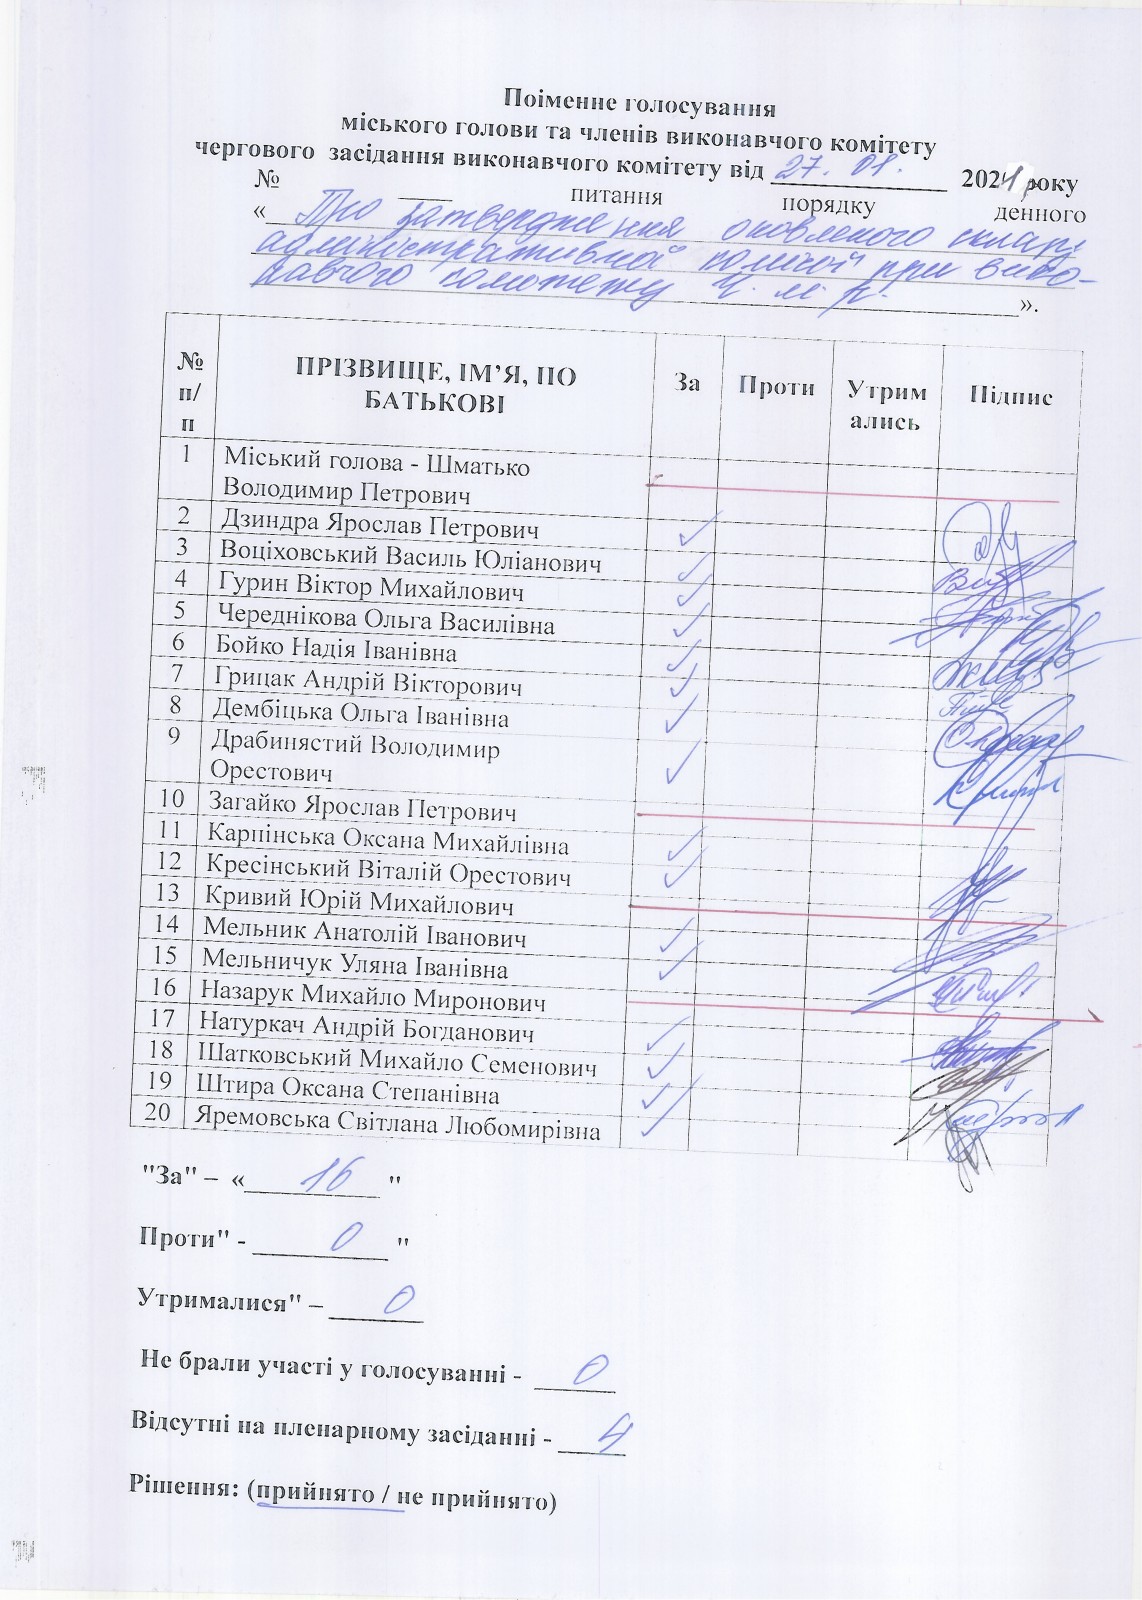 Поіменне голосування
міського голови та членів виконавчого комітету
чергового засідання виконавчого комітету від 27. 01. 2021 року
№ ____ питання порядку денного
« Про затвердження оновленого складу
адміністративної комісії при вико-
навчого комітету Ч. м. р. ».
№ п/п ПРІЗВИЩЕ, ІМ’Я, ПО БАТЬКОВІ За Проти Утрим ались Підпис
1 Міський голова - Шматько
Володимир Петрович
2 Дзиндра Ярослав Петрович ✓
3 Воціховський Василь Юліанович ✓
4 Гурин Віктор Михайлович ✓
5 Череднікова Ольга Василівна ✓
6 Бойко Надія Іванівна ✓
7 Грицак Андрій Вікторович ✓
8 Дембіцька Ольга Іванівна ✓
9 Драбинястий Володимир
Орестович ✓
10 Загайко Ярослав Петрович
11 Карпінська Оксана Михайлівна ✓
12 Кресінський Віталій Орестович ✓
13 Кривий Юрій Михайлович
14 Мельник Анатолій Іванович ✓
15 Мельничук Уляна Іванівна ✓
16 Назарук Михайло Миронович
17 Натуркач Андрій Богданович ✓
18 Шатковський Михайло Семенович ✓
19 Штира Оксана Степанівна ✓
20 Яремовська Світлана Любомирівна ✓
"За" – « 16 "
Проти" - 0 "
Утрималися" – 0
Не брали участі у голосуванні - 0
Відсутні на пленарному засіданні - 4
Рішення: (прийнято / не прийнято)